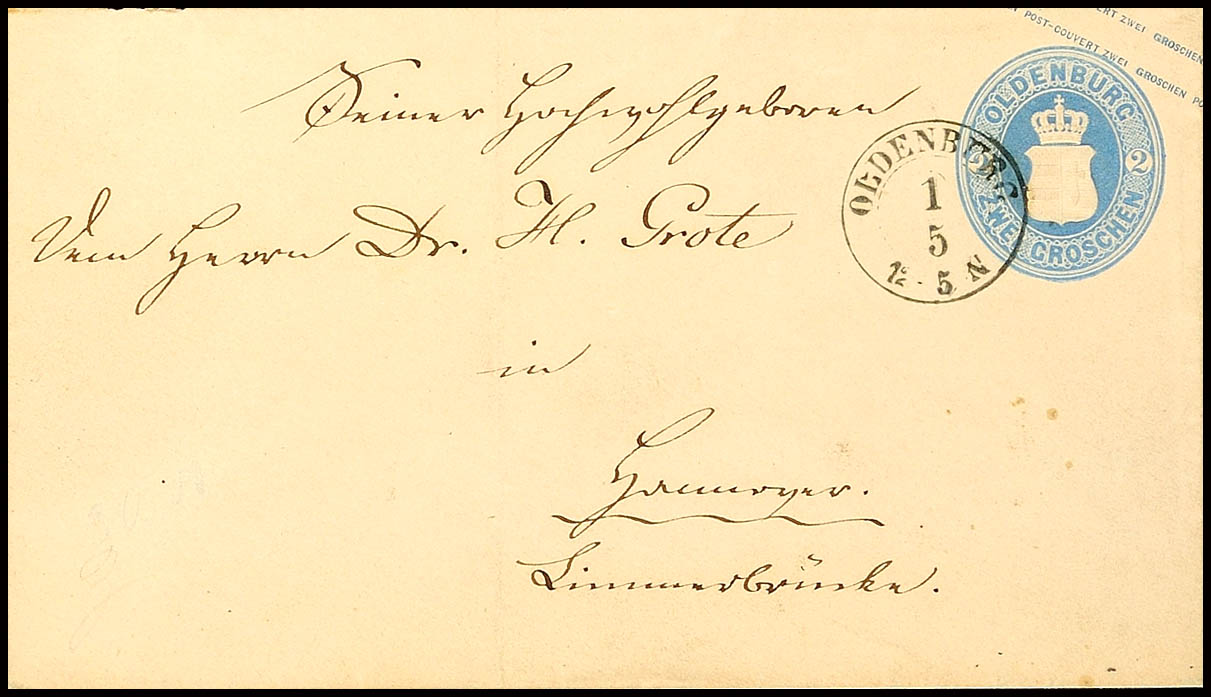 ERT ZWEI GROSCHEN
POST-COUVERT ZWEI GROSCHEN PO
OLDENBURG
2 2
ZWEI GROSCHEN
OLDENBURG
1
5
12 - 5 N
Seiner Hochwohlgeboren
Dem Herrn Dr. H. Grote
in
Hannover.
Limmerbrücke.